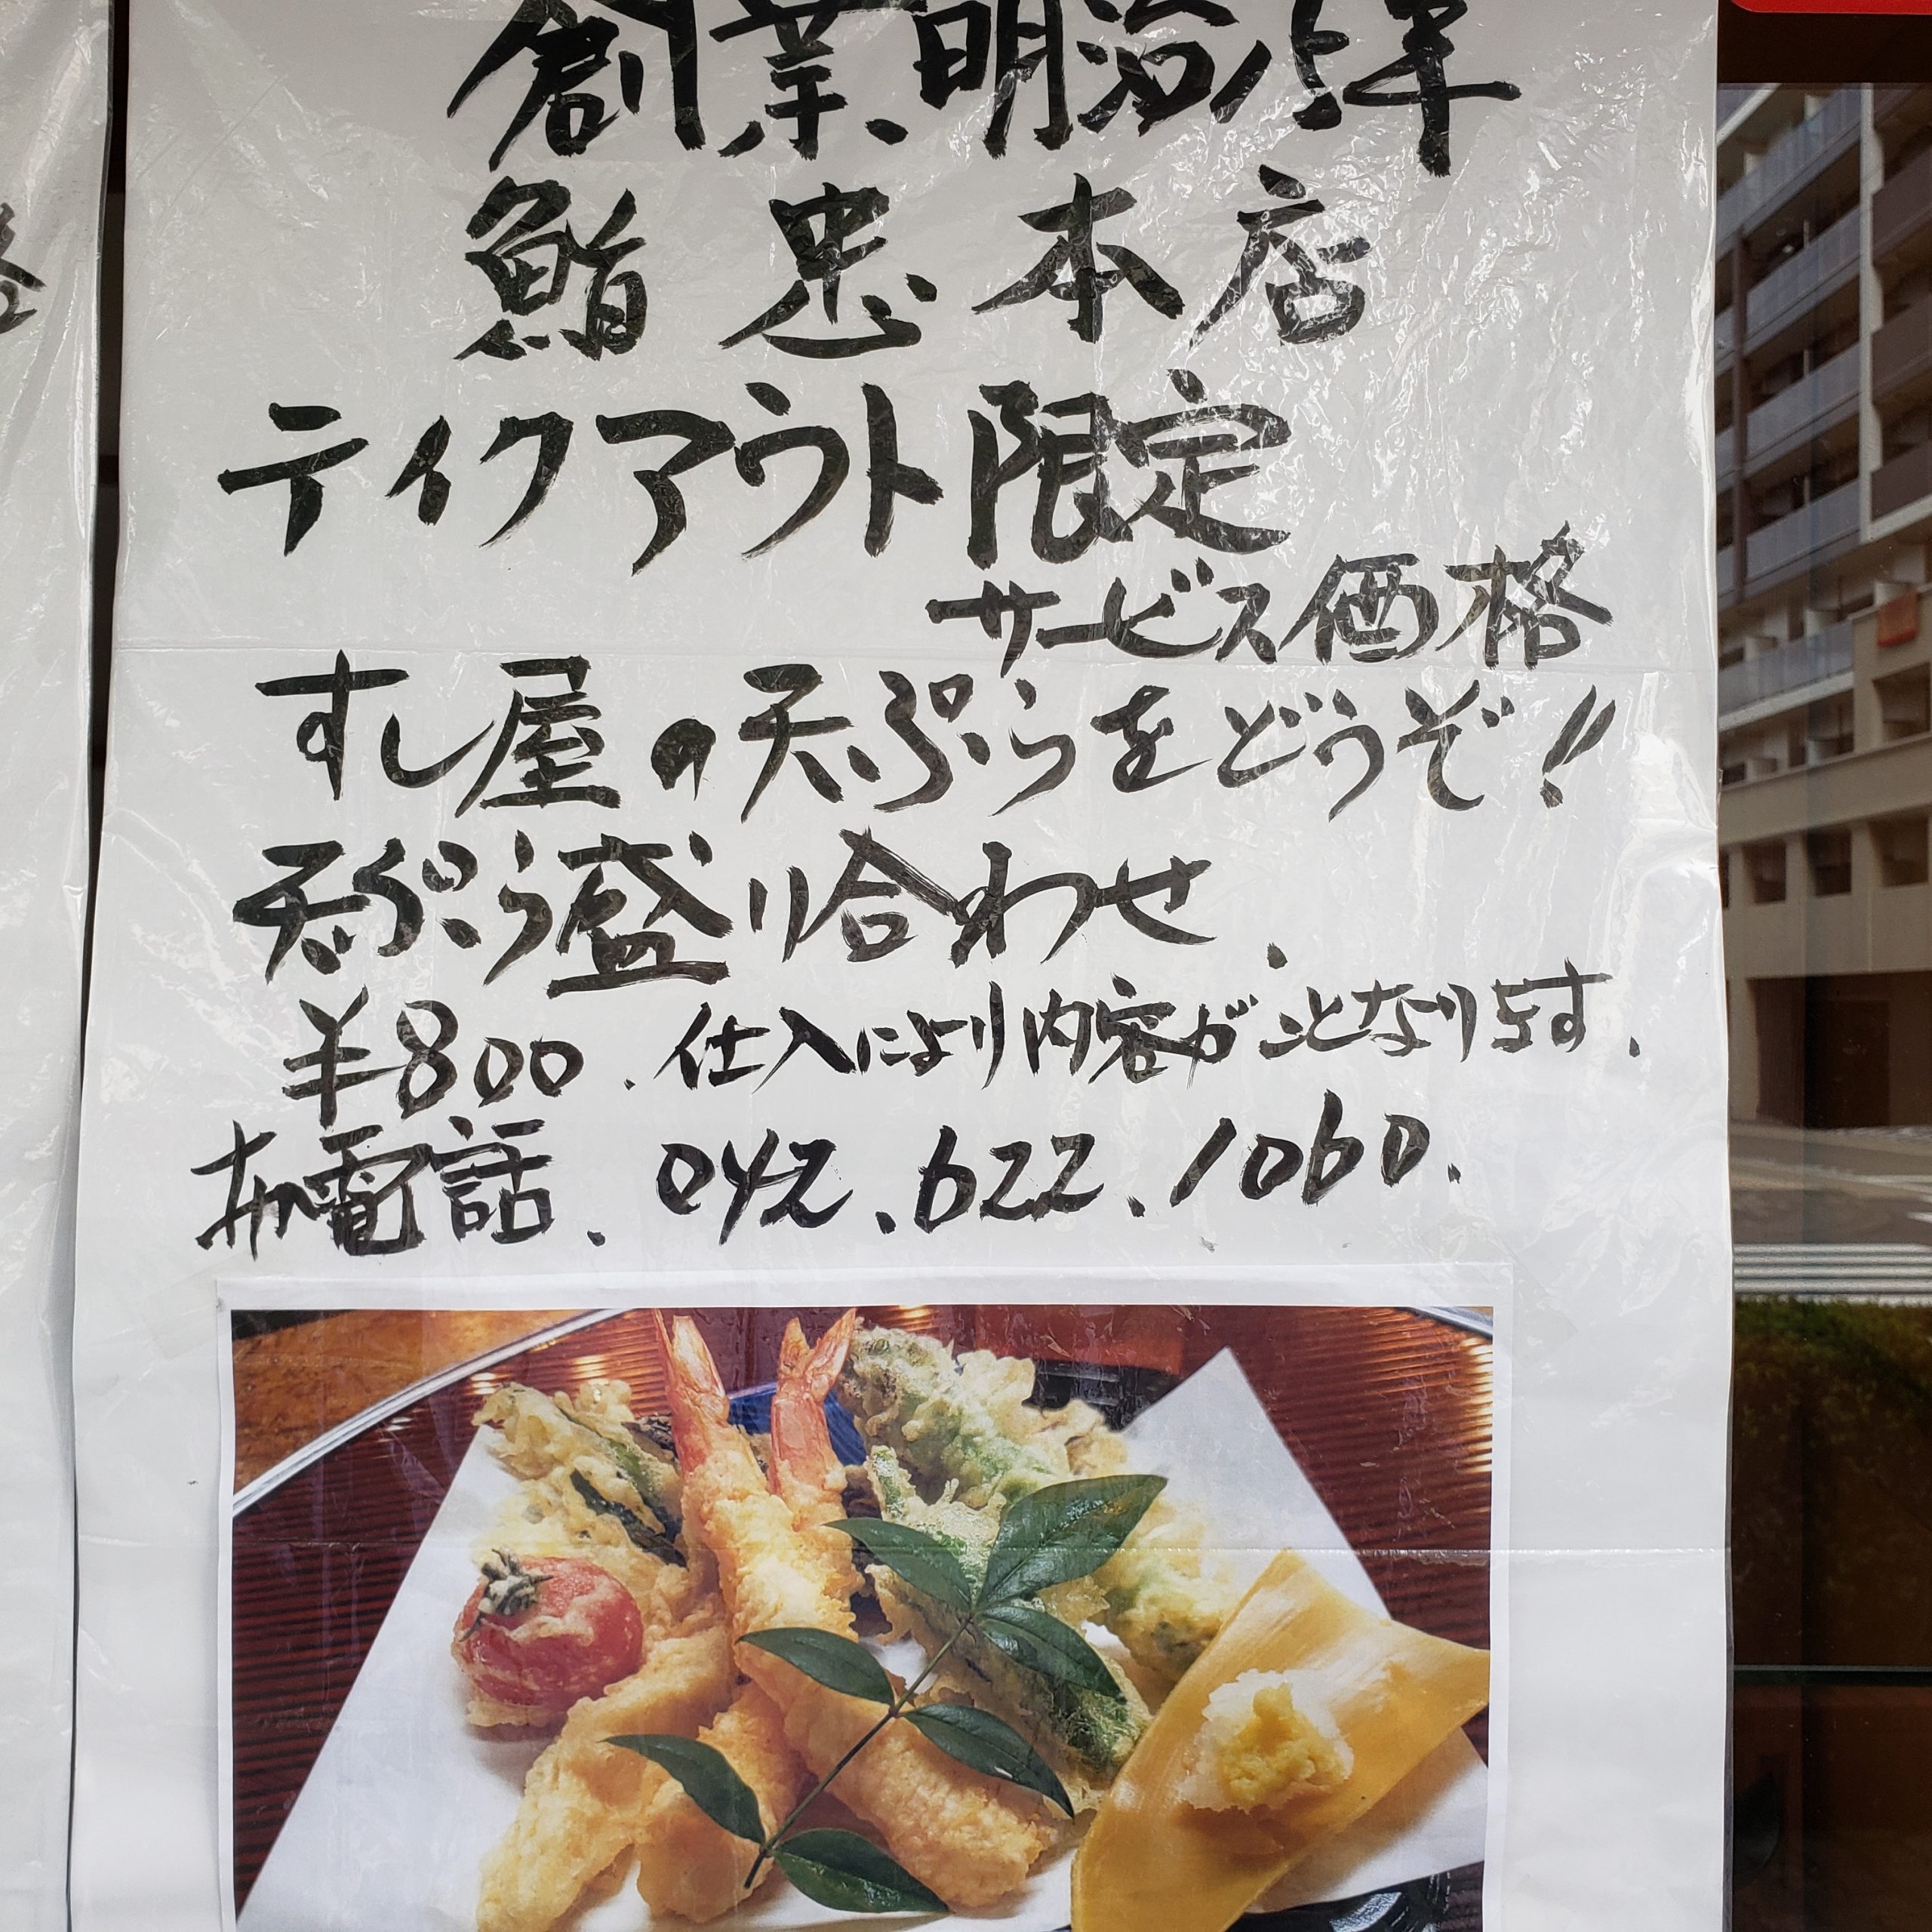 創業明治八年
鮨忠本店
テイクアウト限定
サービス価格
すし屋の天ぷらをどうぞ!!
天ぷら盛り合わせ.
¥800.仕入により内容がことなります.
お電話.042.622.1060.